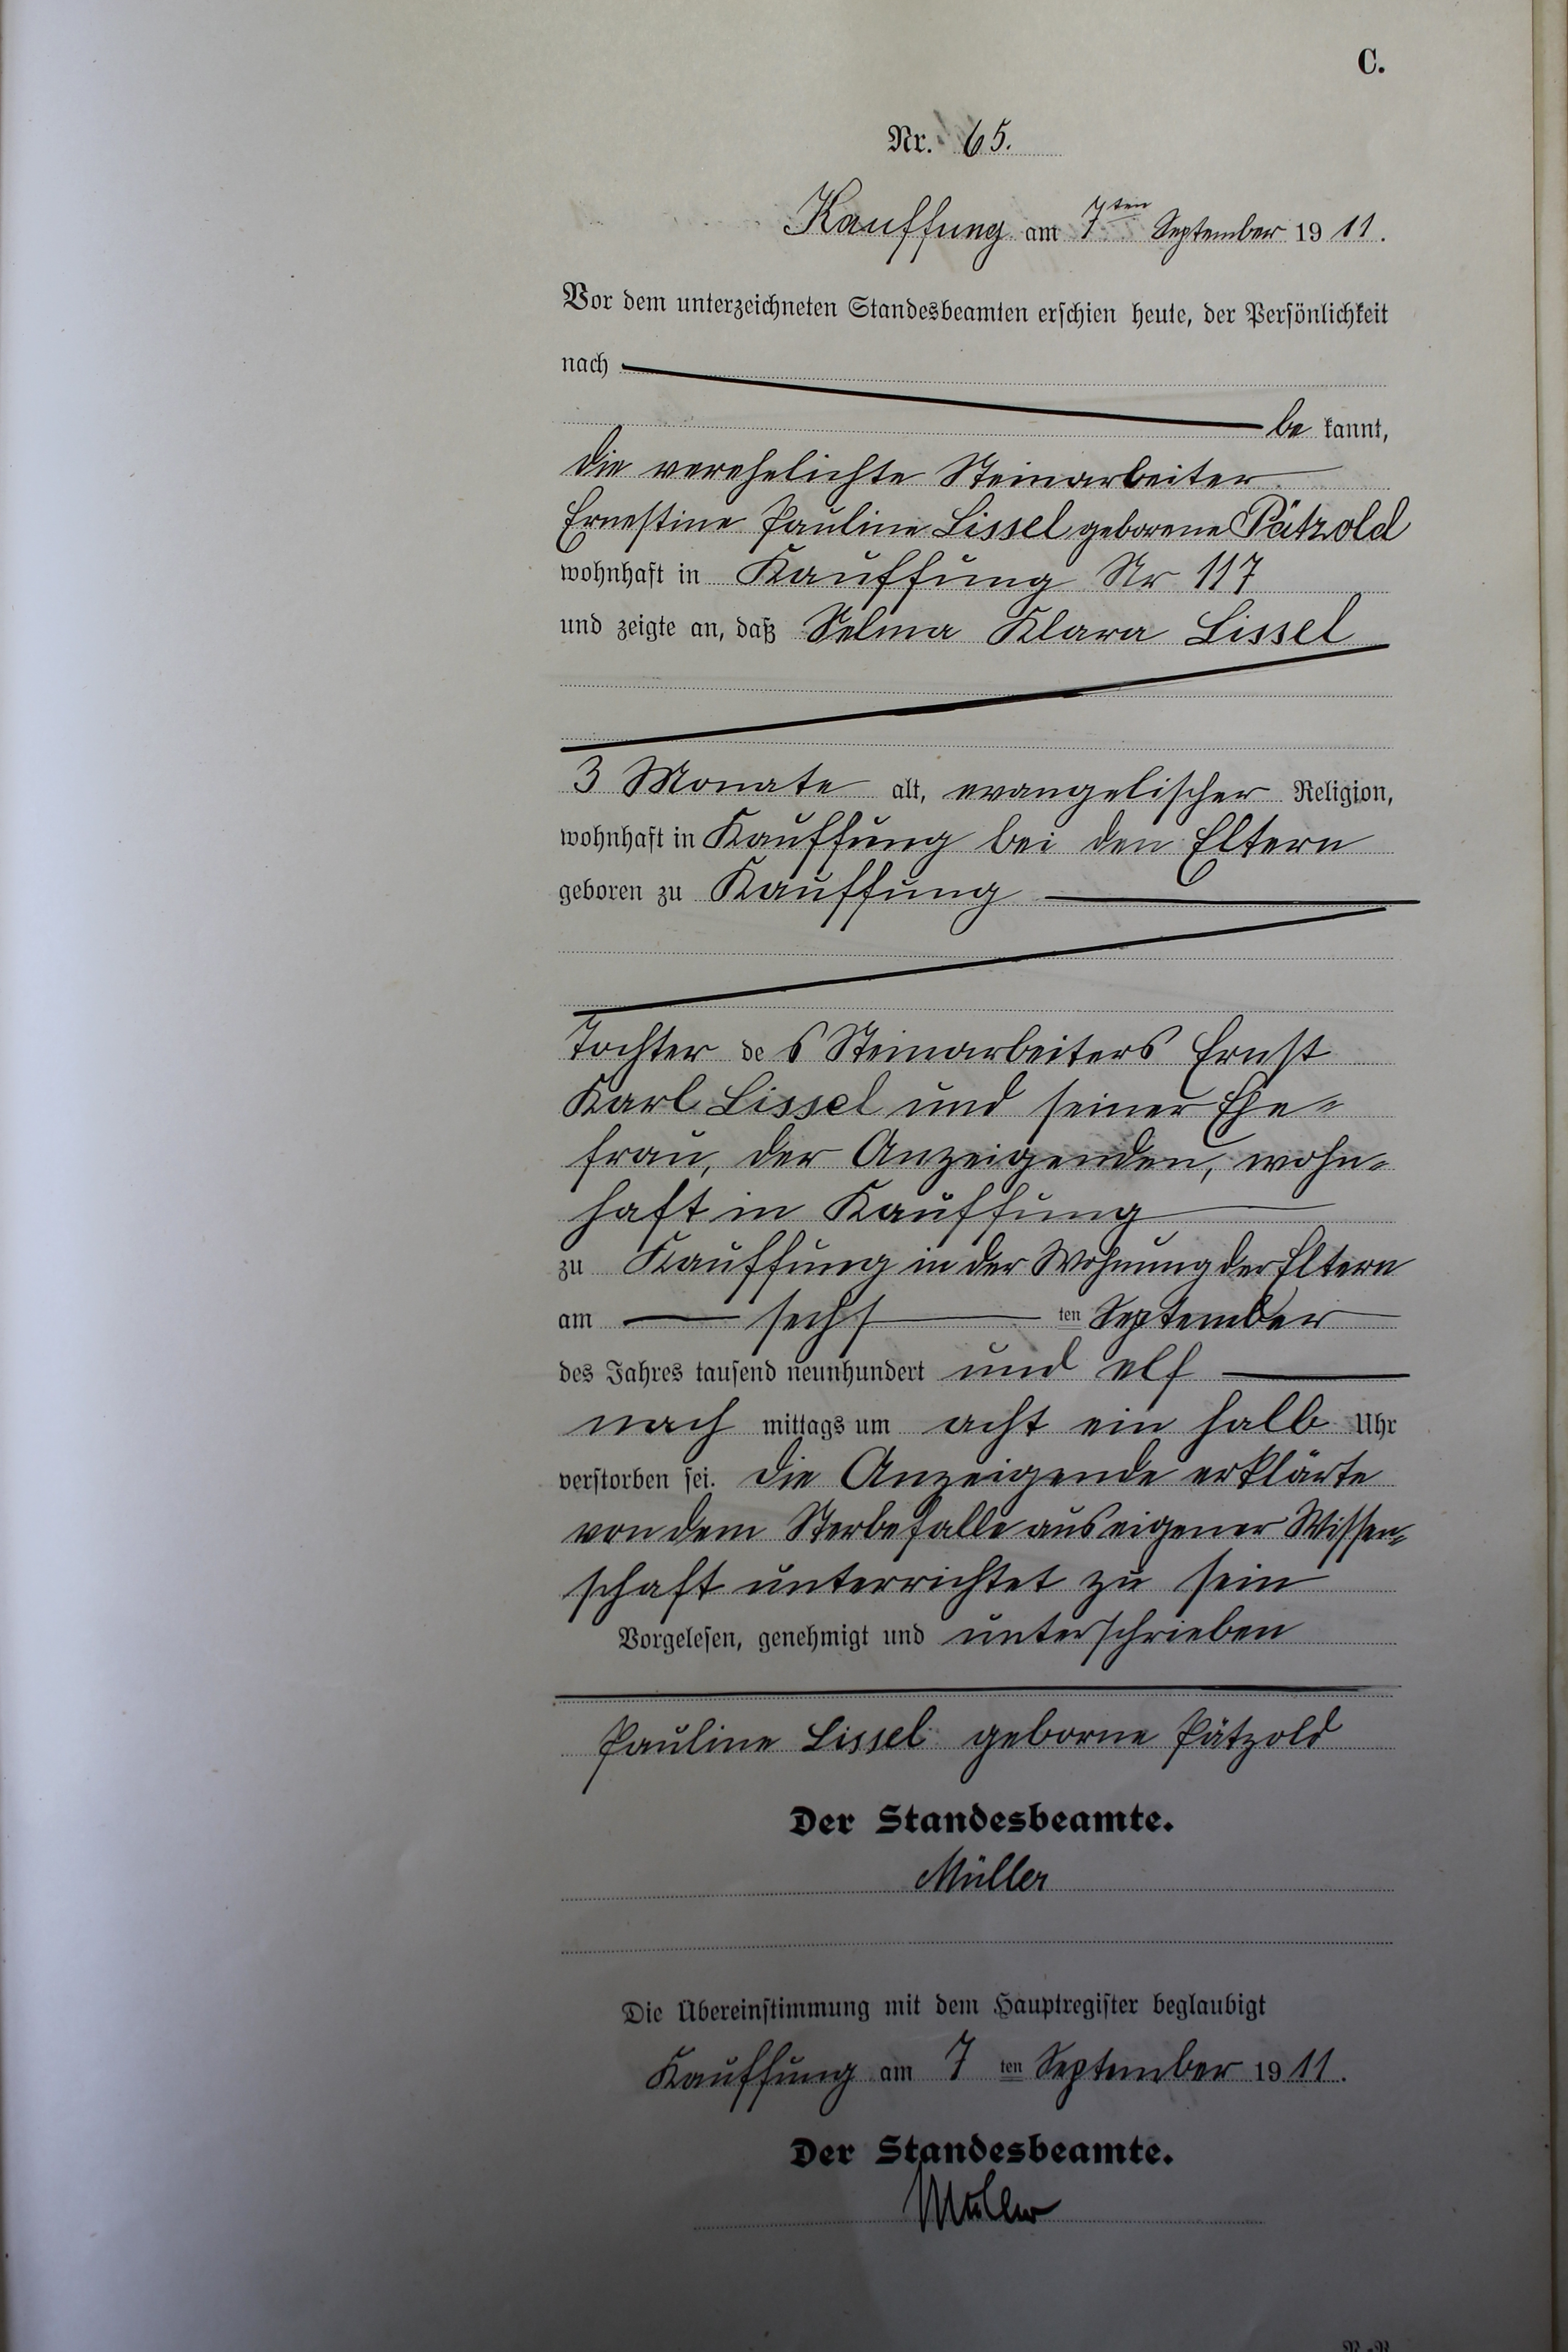 C.
Nr. 65.
Kauffung am 7ten September 1911.
Vor dem unterzeichneten Standesbeamten erschien heute, der Persönlichkeit
nach
be kannt,
die verehelichte Steinarbeiter
Ernestine Pauline Lissel geborene Pätzold
wohnhaft in Kauffung Nr 117
und zeigte an, daß Selma Klara Lissel
3 Monate alt, evangelischer Religion,
wohnhaft in Kauffung bei den Eltern
geboren zu Kauffung
Tochter des Steinarbeiters Ernst
Karl Lissel und seiner Ehe-
frau, der Anzeigenden, wohn-
haft in Kauffung
zu Kauffung in der Wohnung der Eltern
am sechsten September
des Jahres tausend neunhundert und elf
nach mittags um acht ein halb Uhr
verstorben sei. Die Anzeigende erklärte
von dem Sterbefalle aus eigener Wissen-
schaft unterrichtet zu sein
Vorgelesen, genehmigt und unterschrieben
Pauline Lissel geborne Pätzold
Der Standesbeamte.
Müller
Die Übereinstimmung mit dem Hauptregister beglaubigt
Kauffung am 7ten September 1911.
Der Standesbeamte.
Müller